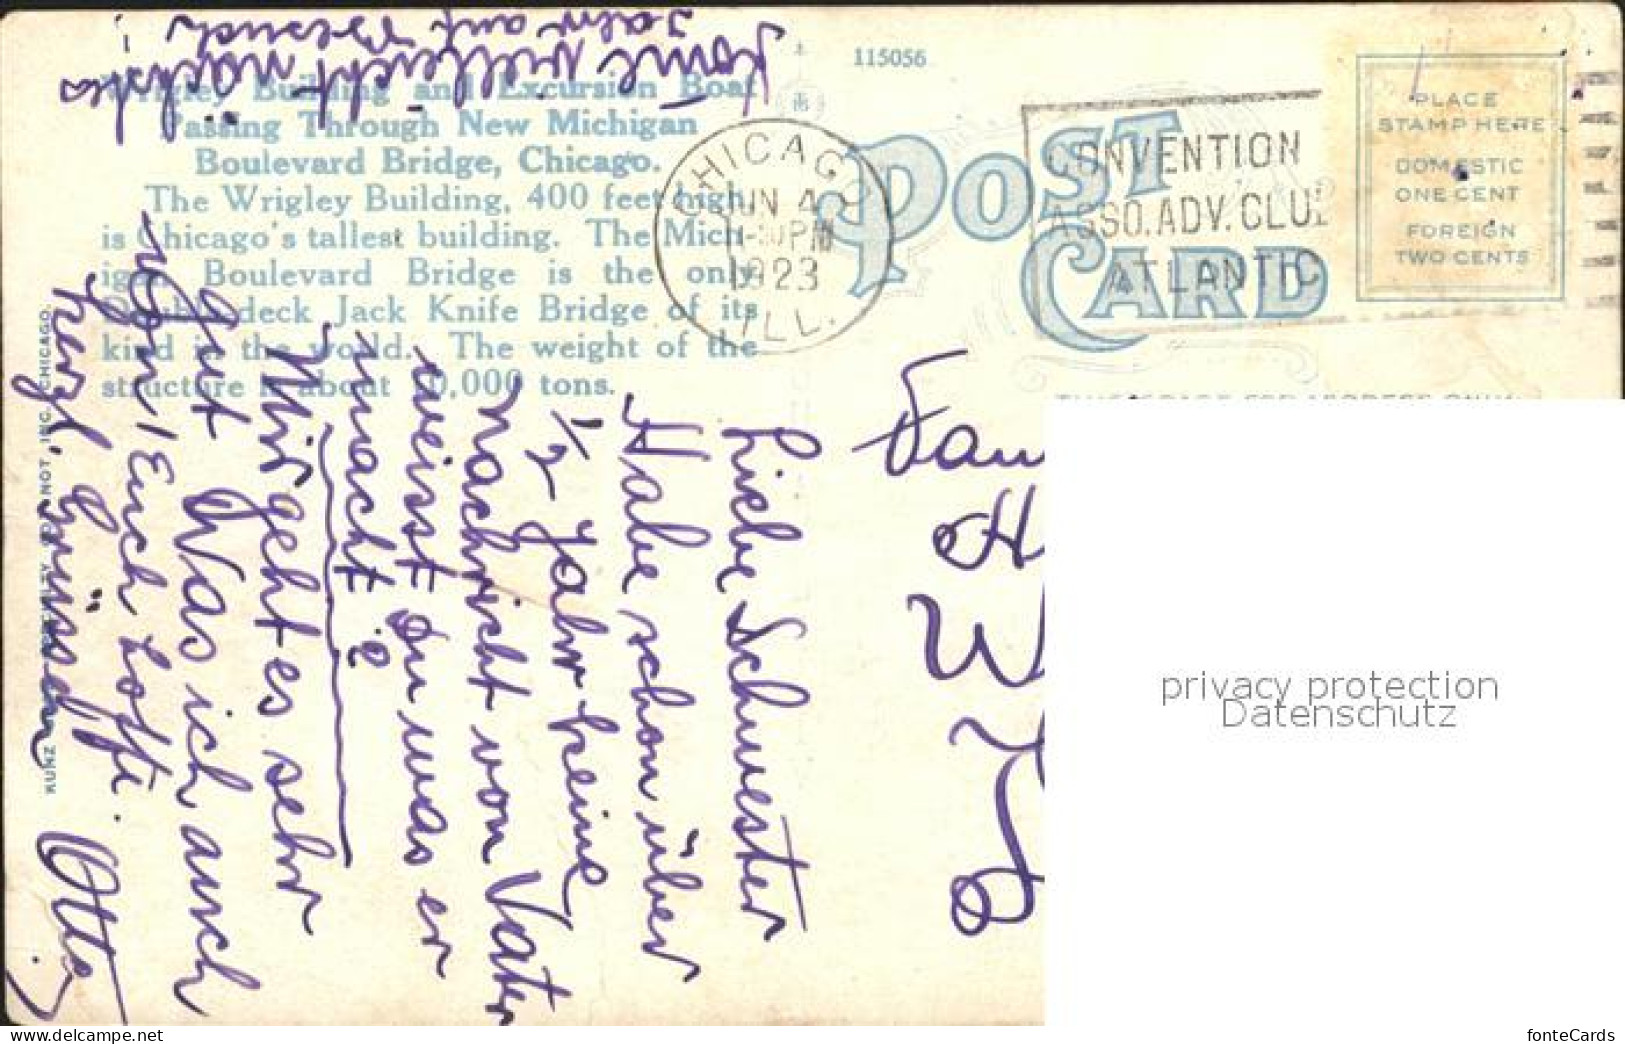 115056
Wrigley Building and Excursion Boat
Passing Through New Michigan
Boulevard Bridge, Chicago.
The Wrigley Building, 400 feet high,
is Chicago's tallest building. The Mich-
igan Boulevard Bridge is the only
Double deck Jack Knife Bridge of its
kind in the world. The weight of the
structure is about 10,000 tons.
CHICAGO
JUN 4
11-30PM
1923
ILL.
POST
CARD
CONVENTION
ASSO. ADV. CLU
ATLANTIC
PLACE
STAMP HERE
DOMESTIC
ONE CENT
FOREIGN
TWO CENTS
THIS SPACE FOR ADDRESS ONLY
Fam
Liebe Schwester
Habe schon über
1/2 Jahr keine
Nachricht von Vater
weisst Du was er
macht?
Mir geht es sehr
Gut Was ich auch
von Euch hoffe.
herzl. Grüssen
Otto
Kome vielleicht nächstes
Jahr auf Besuch!
privacy protection
Datenschutz
www.delcampe.net
fonteCards